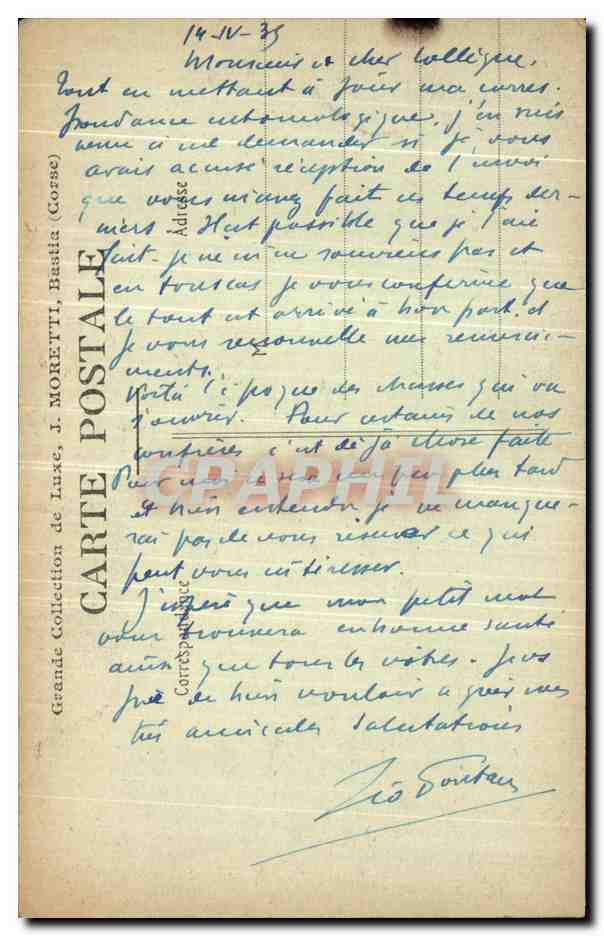 14-IV-35
Monsieur et cher Collègue,
Tout en mettant à jour ma corres-
pondance entomologique, j'en suis
venu à me demander si je vous
avais accusé réception de l'envoi
que vous m'avez fait ces temps der-
niers. Il est possible que je l'aie
fait - je ne m'en souviens pas et
en tout cas je vous confirme que
le tout est arrivé à bon port. et
je vous renouvelle mes remercie-
ments.
Voilà l'époque des chasses qui va
s'ouvrir. Pour certains de nos
confrères c'est déjà chose faite
Pour moi ce sera un peu plus tard
et bien entendu je ne manque-
rai pas de vous réserver ce qui
peut vous intéresser.
J'espère que mon petit mot
vous trouvera en bonne santé
ainsi que tous les vôtres. Je vs
prie de bien vouloir agréer mes
très amicales salutations
Grande Collection de Luxe, J. MORETTI, Bastia (Corse)
CARTE POSTALE
Adresse
M
Correspondance
CPAPHIL